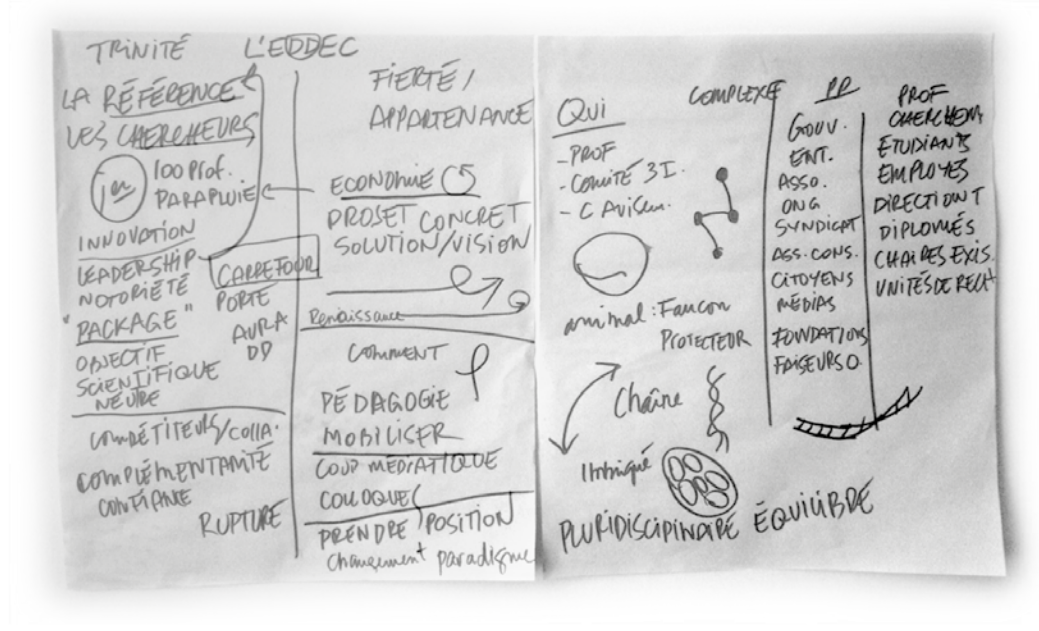 TRINITÉ L'EDDEC
LA RÉFÉRENCE
LES CHERCHEURS
1er
100 Prof.
PARAPLUIE
INNOVATION
LEADERSHIP
NOTORIÉTÉ
"PACKAGE"
OBJECTIF
SCIENTIFIQUE
NEUTRE
CARREFOUR
PORTE
AURA
DD
COMPÉTITEURS/COLLA.
COMPLÉMENTARITÉ
CONFIANCE
RUPTURE
FIERTÉ/
APPARTENANCE
ECONOMIE
PROJET CONCRET
SOLUTION/VISION
Renaissance
COMMENT
PÉDAGOGIE
MOBILISER
COUP MÉDIATIQUE
COLLOQUE
PRENDRE POSITION
changement paradigme
Qui
- PROF
- Comité 3I.
- C Aviseur.
COMPLEXE
animal : Faucon
PROTECTEUR
Chaîne
Imbriqué
PLURIDISCIPINAIRE ÉQUILIBRE
PP
GOUV.
ENT.
ASSO.
ONG
SYNDICAT
ASS. CONS.
CITOYENS
MÉDIAS
FONDATIONS
FAISEURS O.
PROF
CHERCHEURS
ÉTUDIANTS
EMPLOYÉS
DIRECTION T
DIPLOMÉS
CHAIRES EXIS.
UNITÉS DE RECH